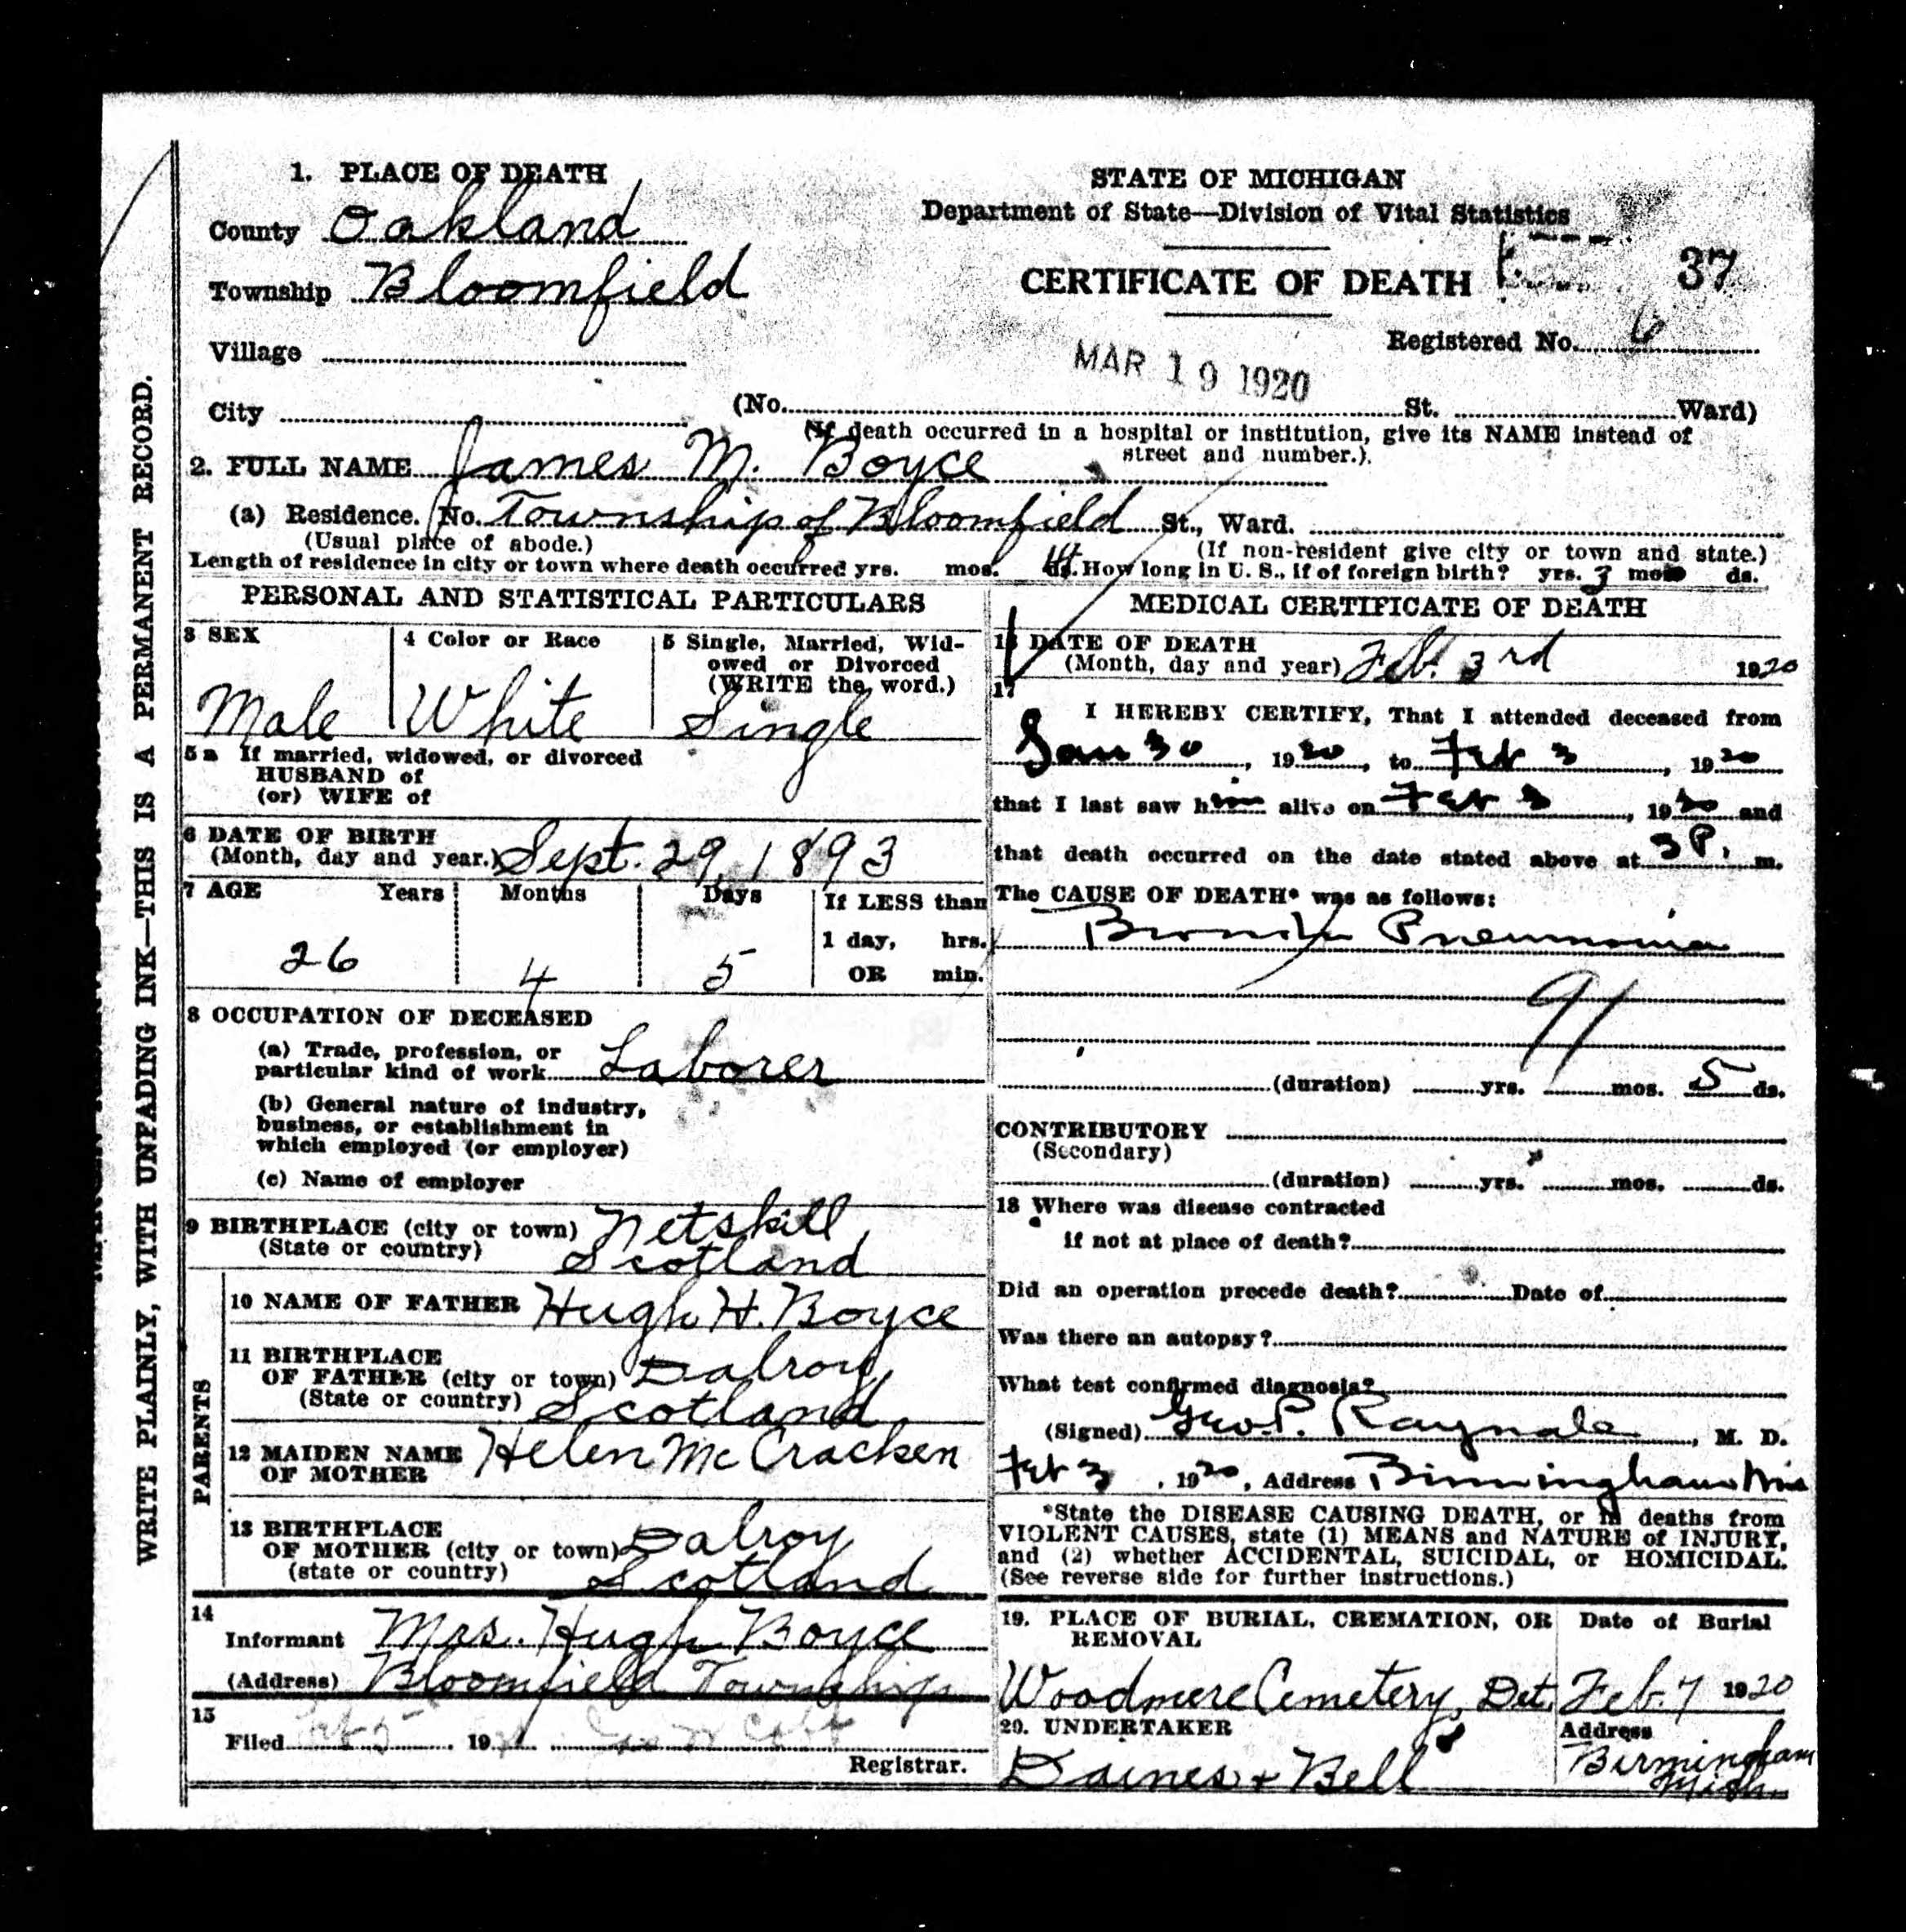 1. PLACE OF DEATH
County Oakland
Township Bloomfield
Village
City
STATE OF MICHIGAN
Department of State—Division of Vital Statistics
CERTIFICATE OF DEATH
37
Registered No. 6
MAR 19 1920
(No. St. Ward)
(If death occurred in a hospital or institution, give its NAME instead of
street and number.).
2. FULL NAME James M. Boyce
(a) Residence. No. Township of Bloomfield St., Ward.
(Usual place of abode.) (If non-resident give city or town and state.)
Length of residence in city or town where death occurred yrs. mos. ds. How long in U. S., if of foreign birth? yrs. 3 mos ds.
PERSONAL AND STATISTICAL PARTICULARS
3 SEX
Male
4 Color or Race
White
5 Single, Married, Wid-
owed or Divorced
(WRITE the word.)
Single
5a If married, widowed, or divorced
HUSBAND of
(or) WIFE of
6 DATE OF BIRTH
(Month, day and year.) Sept. 29, 1893
7 AGE Years Months Days If LESS than
1 day, hrs.
26 4 5
OR min.
8 OCCUPATION OF DECEASED
(a) Trade, profession, or
particular kind of work Laborer
(b) General nature of industry,
business, or establishment in
which employed (or employer)
(c) Name of employer
9 BIRTHPLACE (city or town) Netskill
(State or country) Scotland
PARENTS
10 NAME OF FATHER Hugh H. Boyce
11 BIRTHPLACE
OF FATHER (city or town) Dalroy
(State or country) Scotland
12 MAIDEN NAME Helen McCracken
OF MOTHER
13 BIRTHPLACE
OF MOTHER (city or town) Dalroy
(state or country) Scotland
14
Informant Mrs. Hugh Boyce
(Address) Bloomfield Township
15
Filed 19
Registrar.
MEDICAL CERTIFICATE OF DEATH
16 DATE OF DEATH
(Month, day and year) Feb. 3rd 1920
17
I HEREBY CERTIFY, That I attended deceased from
Jan 30, 1920, to Feb 3, 1920
that I last saw him alive on Feb 3, 1920 and
that death occurred on the date stated above at 3 P. m.
The CAUSE OF DEATH* was as follows:
Broncho Pneumonia
91
(duration) yrs. mos. 5 ds.
CONTRIBUTORY
(Secondary)
(duration) yrs. mos. ds.
18 Where was disease contracted
if not at place of death?
Did an operation precede death? Date of
Was there an autopsy?
What test confirmed diagnosis?
(Signed) Geo. P. Raynale, M. D.
Feb 3, 1920, Address Birmingham Mic
*State the DISEASE CAUSING DEATH, or in deaths from
VIOLENT CAUSES, state (1) MEANS and NATURE of INJURY,
and (2) whether ACCIDENTAL, SUICIDAL, or HOMICIDAL.
(See reverse side for further instructions.)
19. PLACE OF BURIAL, CREMATION, OR
REMOVAL
Woodmere Cemetery, Det.
Date of Burial
Feb. 7 1920
20. UNDERTAKER
Daines + Bell
Address
Birmingham
Mich.
WRITE PLAINLY, WITH UNFADING INK—THIS IS A PERMANENT RECORD.